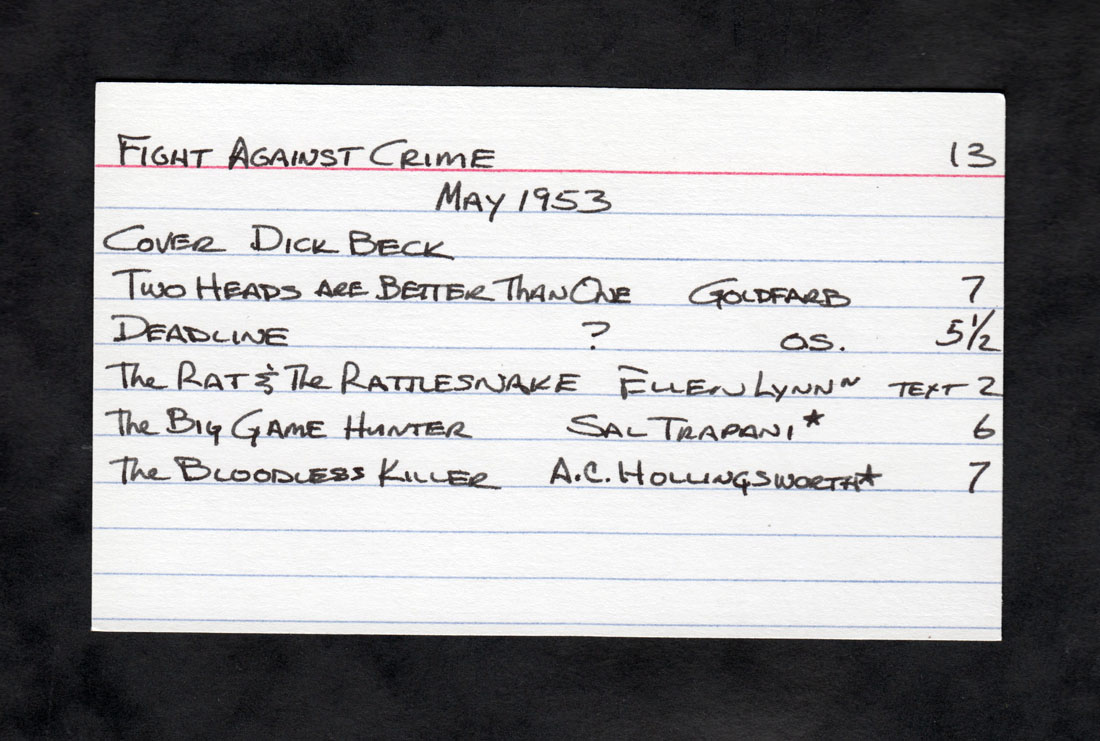 Fight Against Crime 13
May 1953
Cover Dick Beck
Two Heads are Better Than One Goldfarb 7
Deadline ? OS. 5 1/2
The Rat & The Rattlesnake Ellen Lynn~ text 2
The Big Game Hunter Sal Trapani* 6
The Bloodless Killer A.C. Hollingsworth* 7